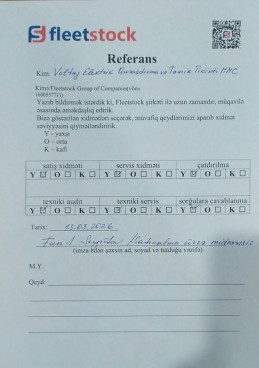 fleetstock
Referans
Kim: Voltaj Elektrik Quraşdırma və Təmir Xidməti MMC
Kimə: Fleetstock Group of Companies(vöen
1600557711)
Yazıb bildirmək istərdik ki, Fleetstock şirkəti ilə uzun zamandır, müqavilə
əsasında əməkdaşlıq edirik.
Bizə göstərilən xidmətləri seçərək, müvafiq qeydlərimizi aparıb xidmət
səviyyəsini qiymətləndiririk.
Y - yaxşı
O - orta
K - kafi
satış xidməti servis xidməti çatdırılma
Y ☑ O ☐ K ☐ Y ☑ O ☐ K ☐ Y ☑ O ☐ K ☐
texniki audit texniki servis sorğulara cavablanma
Y ☑ O ☐ K ☐ Y ☑ O ☐ K ☐ Y ☑ O ☐ K ☐
Tarix: 13.03.2026
Fuad Satınalma üzrə mütəxəssis
(imza edən şəxsin ad, soyad və tutduğu vəzifə)
M.Y.
Qeyd: